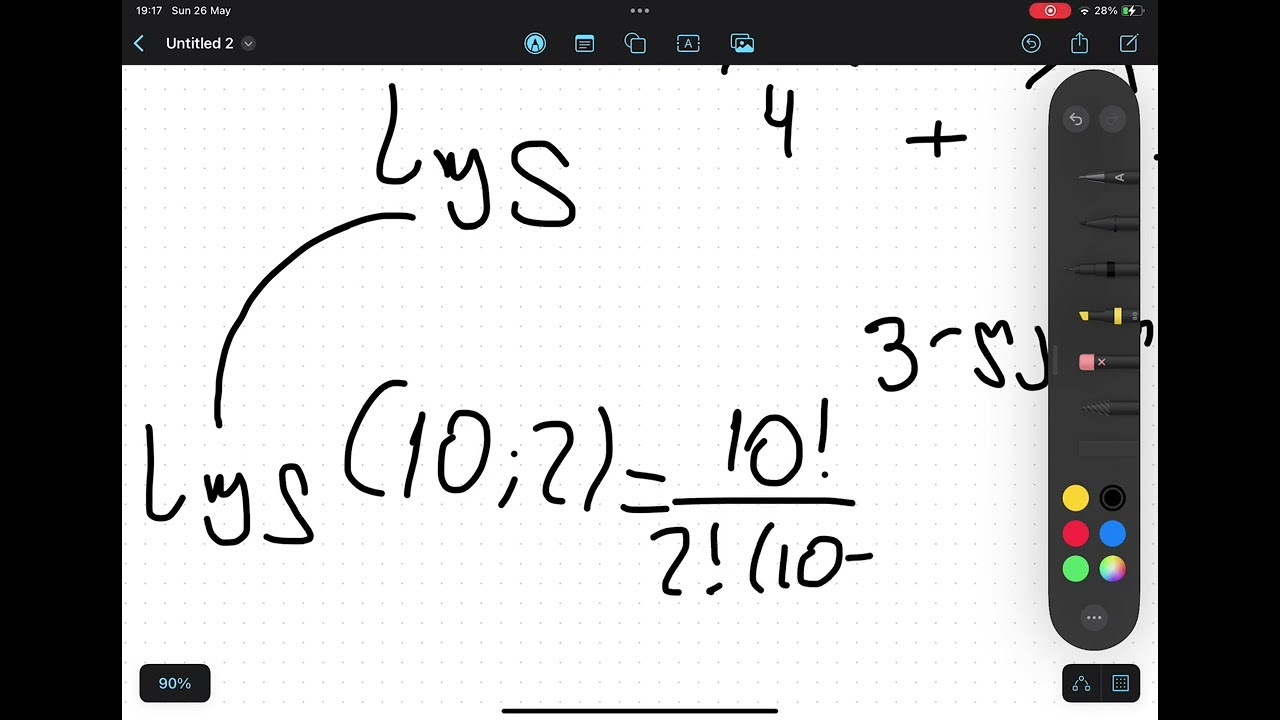 19:17 Sun 26 May
28%
Untitled 2
4 +
Lys
3-
Lys (10;2) = 10!
2! (10-
90%